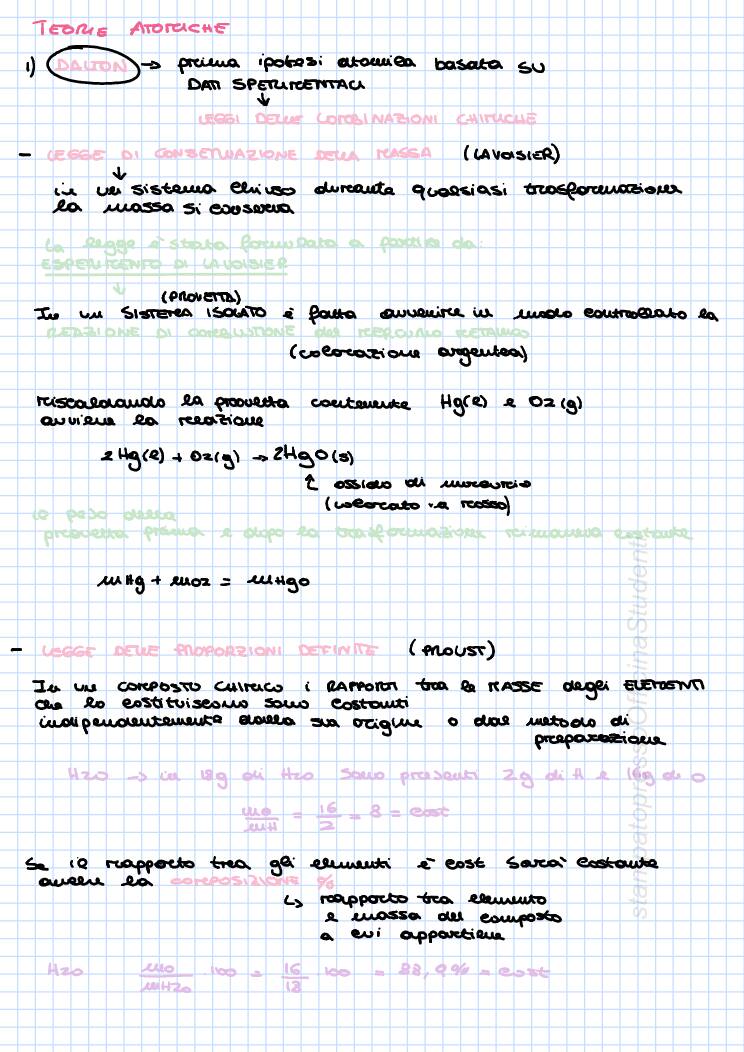 TEORIE ATOMICHE
1) DALTON → prima ipotesi atomica basata su
DATI SPERIMENTALI
↓
LEGGI DELLE COMBINAZIONI CHIMICHE
- LEGGE DI CONSERVAZIONE DELLA MASSA (LAVOISIER)
↓
in un sistema chiuso durante qualsiasi trasformazione
la massa si conserva
La legge è stata formulata a partire da:
ESPERIMENTO DI LAVOISIER
↓
(PROVETTA)
In un SISTEMA ISOLATO è fatta avvenire in modo controllato la
REAZIONE DI COMBUSTIONE del MERCURIO METALLICO
(colorazione argentea)
riscaldando la provetta contenente Hg(l) e O2(g)
avviene la reazione
2Hg(l) + O2(g) → 2HgO(s)
↑ ossido di mercurio
(colorato in rosso)
il peso della
provetta prima e dopo la trasformazione rimaneva costante
mHg + mO2 = mHgO
- LEGGE DELLE PROPORZIONI DEFINITE (PROUST)
In un COMPOSTO CHIMICO i RAPPORTI tra le MASSE degli ELEMENTI
che lo costituiscono sono costanti
indipendentemente dalla sua origine o dal metodo di
preparazione
H2O → in 18g di H2O sono presenti 2g di H e 16g di O
mO/mH = 16/2 = 8 = cost
Se il rapporto tra gli elementi è cost sarà costante
anche la COMPOSIZIONE %
↳ rapporto tra elemento
e massa del composto
a cui appartiene
H2O mO/mH2O · 100 = 16/18 · 100 = 88,9% = cost
stampatopressoOfficinaStudenti